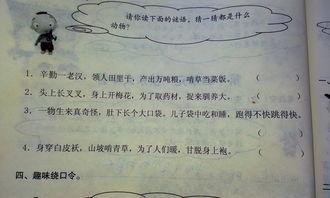 请你读下面的谜语，猜一猜都是什么
动物？
1．辛勤一老汉，领人田里干，产出万吨粮，啃草当菜饭。（　　）
2．头上长叉叉，身上开梅花，为了取药材，捉来驯养大。（　　）
3．一物生来真奇怪，肚下长个大口袋。儿子袋中吃和睡，跑得不快跳得快。
（　　）
4．身穿白皮袄，山坡啃青草，为了人们暖，甘脱身上袍。（　　）
四、趣味绕口令。